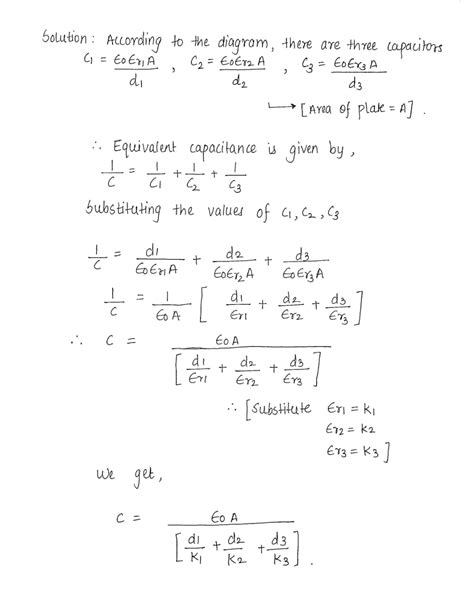 Solution: According to the diagram, there are three capacitors
C1 = ϵ0ϵr1A / d1 , C2 = ϵ0ϵr2A / d2 , C3 = ϵ0ϵr3A / d3
→ [Area of plate = A] .
∴ Equivalent capacitance is given by,
1/C = 1/C1 + 1/C2 + 1/C3
Substituting the values of C1, C2, C3
1/C = d1/ϵ0ϵr1A + d2/ϵ0ϵr2A + d3/ϵ0ϵr3A
1/C = 1/ϵ0A [ d1/ϵr1 + d2/ϵr2 + d3/ϵr3 ]
∴ C = ϵ0A / [ d1/ϵr1 + d2/ϵr2 + d3/ϵr3 ]
∴ [Substitute ϵr1 = K1
ϵr2 = K2
ϵr3 = K3 ]
We get,
C = ϵ0A / [ d1/K1 + d2/K2 + d3/K3 ] .